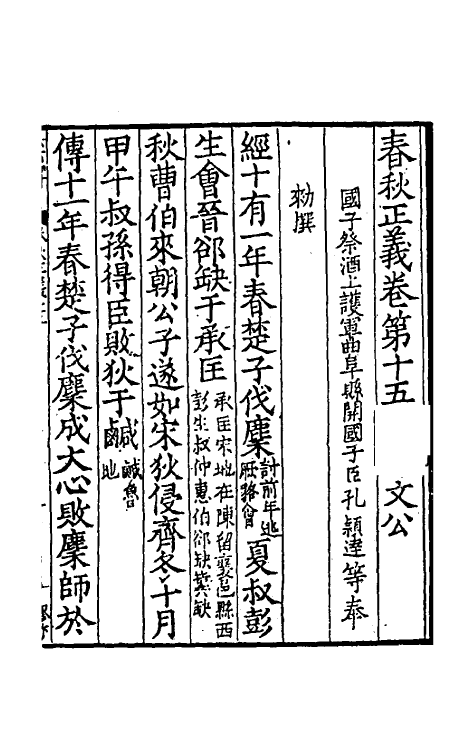 春秋正義卷第十五　文公
國子祭酒上護軍曲阜縣開國子臣孔穎達等奉
勑撰
經十有一年春楚子伐麇討前年逃厥貉會夏叔彭
生會晉郤缺于承匡承匡宋地在陳留襄邑縣西彭生叔仲惠伯郤缺冀缺
秋曹伯來朝公子遂如宋狄侵齊冬十月
甲午叔孫得臣敗狄于鹹鹹魯地
傳十一年春楚子伐麇成大心敗麇師於